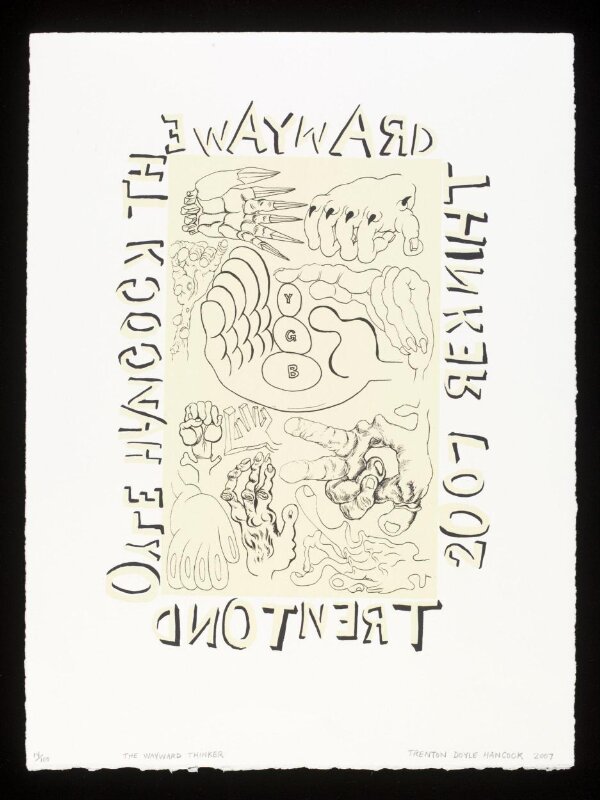 E WAYWARD
THINKER 2007
TRENTOND
OYLE HANCOCK TH
Y
G
B
THE WAYWARD THINKER
TRENTON DOYLE HANCOCK 2007